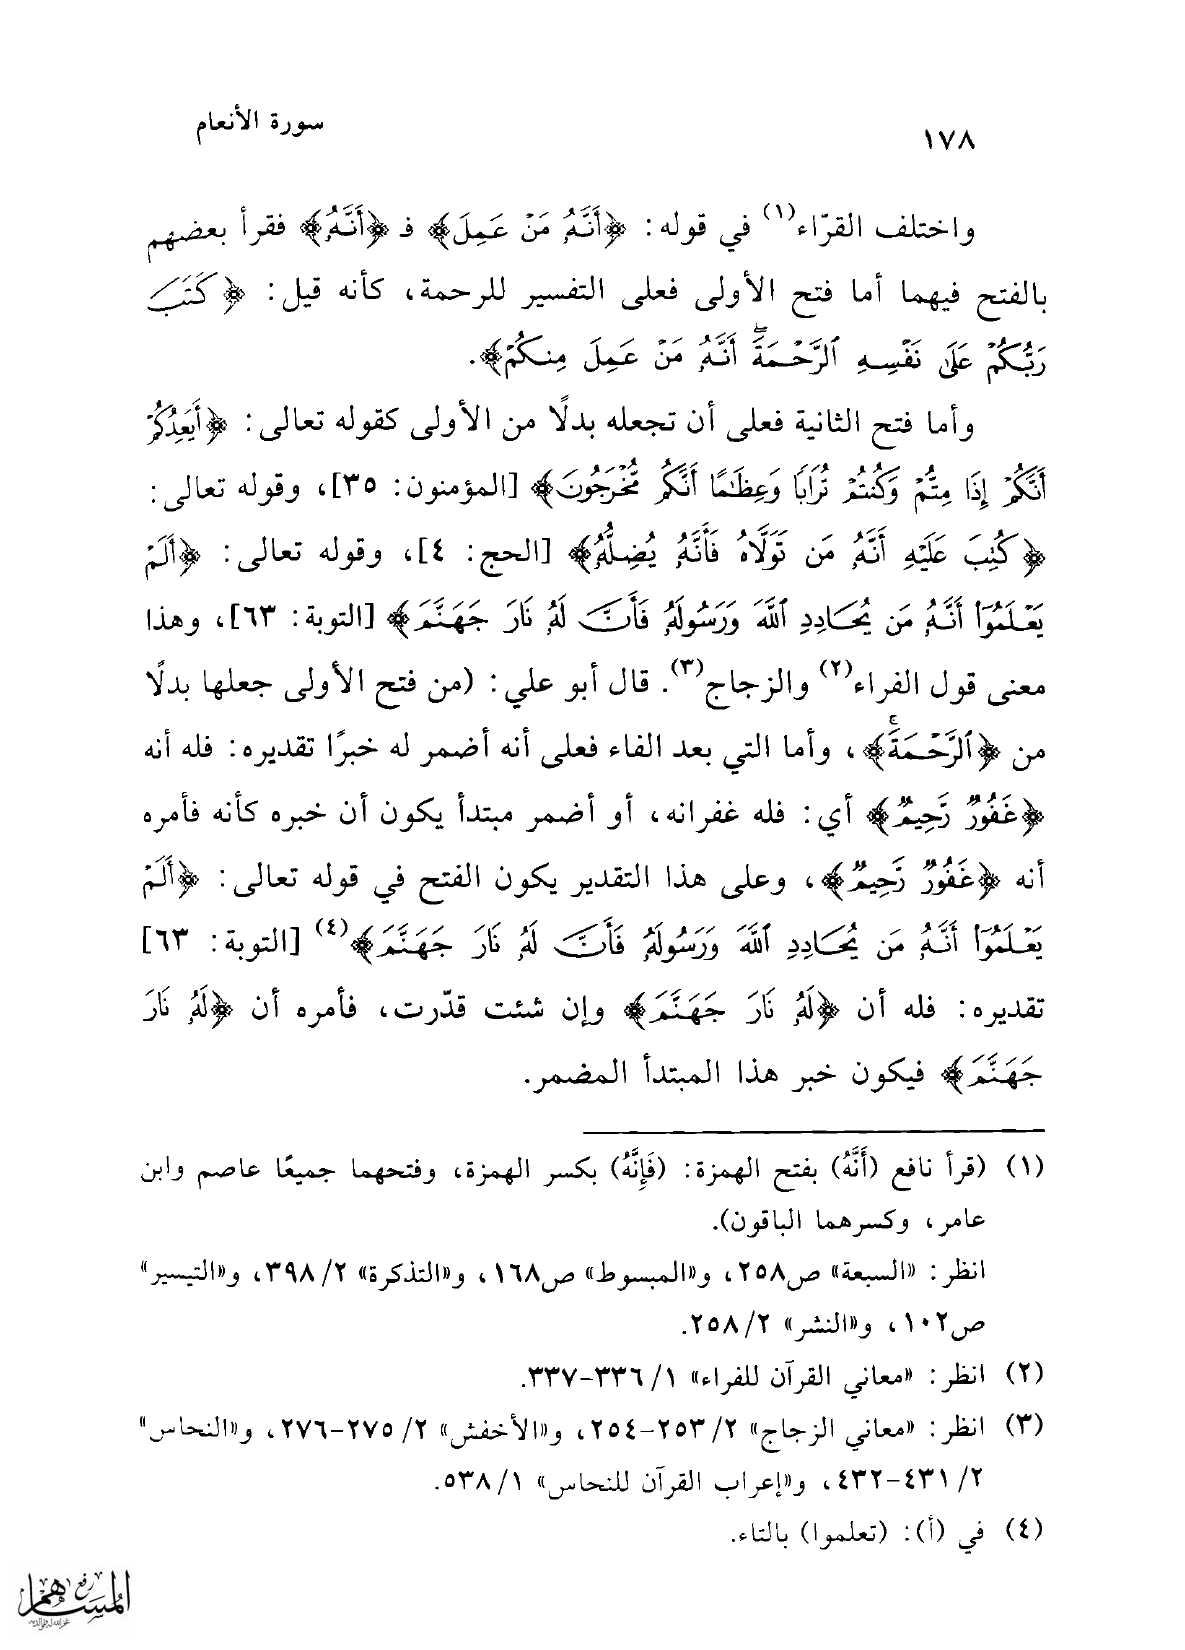 سورة الأنعام
١٧٨
واختلف القرّاء(١) في قوله: ﴿أَنَّهُ مَنْ عَمِلَ﴾ فـ ﴿أَنَّهُ﴾ فقرأ بعضهم
بالفتح فيهما أما فتح الأولى فعلى التفسير للرحمة، كأنه قيل: ﴿كَتَبَ
رَبُّكُمْ عَلَىٰ نَفْسِهِ ٱلرَّحْمَةَ ۖ أَنَّهُۥ مَنْ عَمِلَ مِنكُمْ﴾.
وأما فتح الثانية فعلى أن تجعله بدلًا من الأولى كقوله تعالى: ﴿أَيَعِدُكُمْ
أَنَّكُمْ إِذَا مِتُّمْ وَكُنتُمْ تُرَابًا وَعِظَٰمًا أَنَّكُم مُّخْرَجُونَ﴾ [المؤمنون: ٣٥]، وقوله تعالى:
﴿كُتِبَ عَلَيْهِ أَنَّهُۥ مَن تَوَلَّاهُ فَأَنَّهُۥ يُضِلُّهُۥ﴾ [الحج: ٤]، وقوله تعالى: ﴿أَلَمْ
يَعْلَمُوٓا۟ أَنَّهُۥ مَن يُحَادِدِ ٱللَّهَ وَرَسُولَهُۥ فَأَنَّ لَهُۥ نَارَ جَهَنَّمَ﴾ [التوبة: ٦٣]، وهذا
معنى قول الفراء(٢) والزجاج(٣). قال أبو علي: (من فتح الأولى جعلها بدلًا
من ﴿ٱلرَّحْمَةَ ۚ﴾، وأما التي بعد الفاء فعلى أنه أضمر له خبرًا تقديره: فله أنه
﴿غَفُورٌ رَّحِيمٌ﴾ أي: فله غفرانه، أو أضمر مبتدأ يكون أن خبره كأنه فأمره
أنه ﴿غَفُورٌ رَّحِيمٌ﴾، وعلى هذا التقدير يكون الفتح في قوله تعالى: ﴿أَلَمْ
يَعْلَمُوٓا۟ أَنَّهُۥ مَن يُحَادِدِ ٱللَّهَ وَرَسُولَهُۥ فَأَنَّ لَهُۥ نَارَ جَهَنَّمَ﴾(٤) [التوبة: ٦٣]
تقديره: فله أن ﴿لَهُۥ نَارَ جَهَنَّمَ﴾ وإن شئت قدّرت، فأمره أن ﴿لَهُۥ نَارَ
جَهَنَّمَ﴾ فيكون خبر هذا المبتدأ المضمر.
(١) (قرأ نافع (أَنَّهُ) بفتح الهمزة: (فَإِنَّهُ) بكسر الهمزة، وفتحهما جميعًا عاصم وابن
عامر، وكسرهما الباقون).
انظر: «السبعة» ص٢٥٨، و«المبسوط» ص١٦٨، و«التذكرة» ٢/ ٣٩٨، و«التيسير»
ص١٠٢، و«النشر» ٢/ ٢٥٨.
(٢) انظر: «معاني القرآن للفراء» ١/ ٣٣٦-٣٣٧.
(٣) انظر: «معاني الزجاج» ٢/ ٢٥٣-٢٥٤، و«الأخفش» ٢/ ٢٧٥-٢٧٦، و«النحاس»
٢/ ٤٣١-٤٣٢، و«إعراب القرآن للنحاس» ١/ ٥٣٨.
(٤) في (أ): (تعلموا) بالتاء.